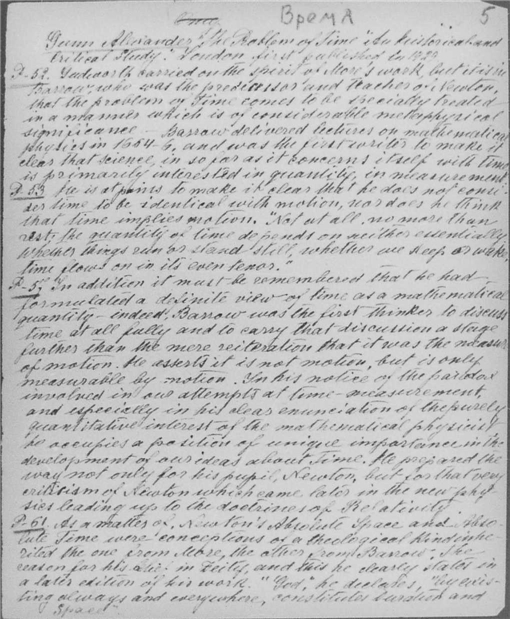 Время 5
Gunn Alexander "The Problem of Time" An historical and
critical Study. London first published in 1929
P. 52. Cudworth carried on the spirit of More's work, but it is in
Barrow, who was the predecessor and teacher of Newton,
that the problem of Time comes to be specially treated
in a manner which is of considerable metaphysical
significance – Barrow delivered lectures on mathematical
physics in 1654-6, and was the first writer to make it
clear that science, in so far as it concerns itself with time
is primarily interested in quantity, in measurement
P. 53 he is at pains to make it clear that he does not consi-
der time to be identical with motion, nor does he think
that time implies motion. "Not at all, no more than
rest; the quantity of time depends on neither essentially
whether things run or stand still, whether we sleep or wake,
time flows on in its even tenor."
P. 5 In addition it must be remembered that he had
formulated a definite view of time as a mathematical
quantity – indeed, Barrow was the first thinker to discuss
time at all fully and to carry that discussion a stage
further than the mere reiteration that it was the measure
of motion. He asserts it is not motion, but is only
measurable by motion. In his notice of the paradox
involved in our attempts at time-measurement,
and especially in his clear enunciation of the purely
quantitative interest of the mathematical physicist
he occupies a position of unique importance in the
development of our ideas about Time. He prepared the
way not only for his pupil, Newton, but for that very
criticism of Newton which came later in the new phy-
sics leading up to the doctrines of Relativity
P. 61. As a matter of, Newton's Absolute Space and Abso-
lute Time were conceptions of a theological kind inhe-
rited the one from More, the other from Barrow. The
reason for his lies in Deity, and this he clearly states in
a later edition of his work. "God", he declares, "by exis-
ting always and everywhere, constitutes duration and
Space"